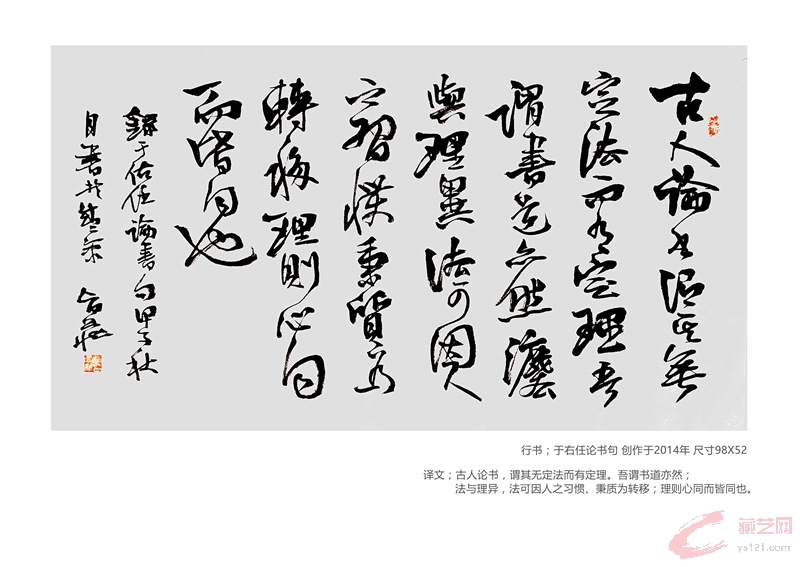 古人論书謂其無
定法而有定理吾
謂書道亦然灋
與理異法可因人
之習慣秉質為
轉移理則心同
而皆同也
錄于佑任論書句甲午秋
月書於京
行书；于右任论书句 创作于2014年 尺寸98X52
译文；古人论书，谓其无定法而有定理。吾谓书道亦然；
法与理异，法可因人之习惯、秉质为转移；理则心同而皆同也。
藏艺网
ys121.com